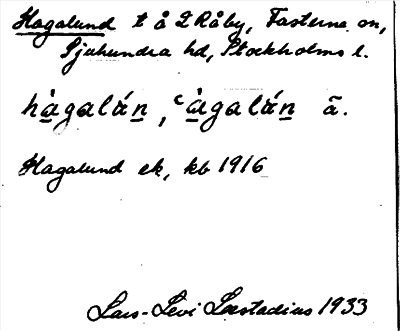 Hagalund t å 2 Råby, Fasterna sn,
Sjuhundra hd, Stockholms l.
hàgalán, ʿàgalán ã.
Hagalund ek, kb 1916
Lars-Levi Læstadius 1933